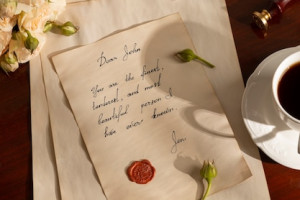 Dear John
You are the finest,
tenderest, and most
beautiful person I
have ever known